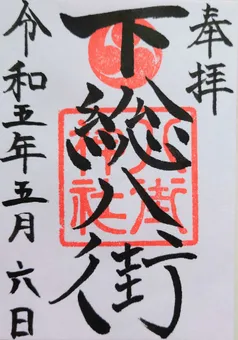 奉拝
下總八街
八街神社
令和五年五月六日